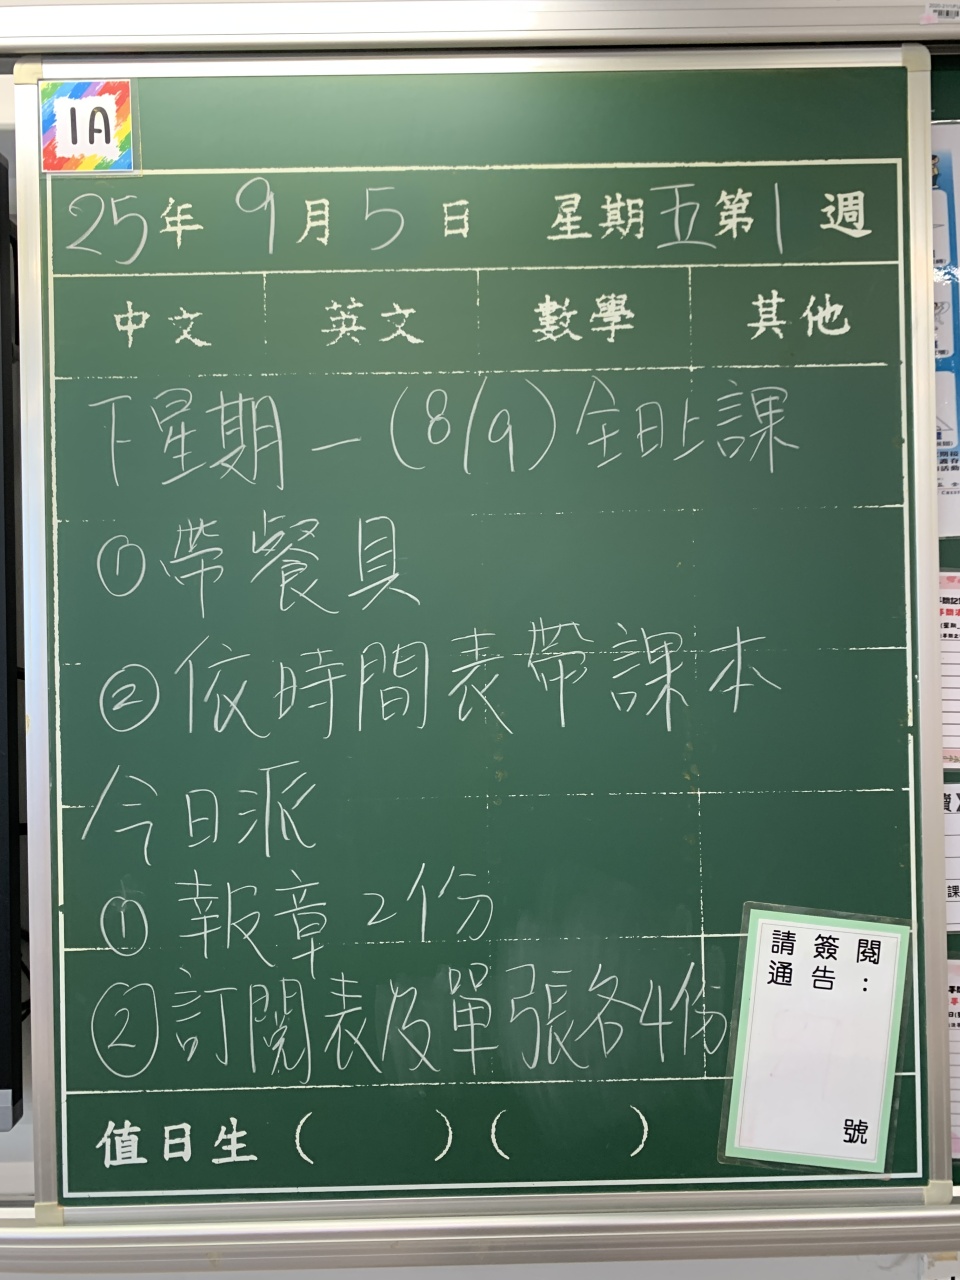 1A
25年9月5日 星期五第1週
中文 英文 數學 其他
下星期一(8/9)全日上課
①帶餐具
②依時間表帶課本
今日派
①報章2份
②訂閱表及單張各4份
請簽閱
通告:
號
值日生( )( )